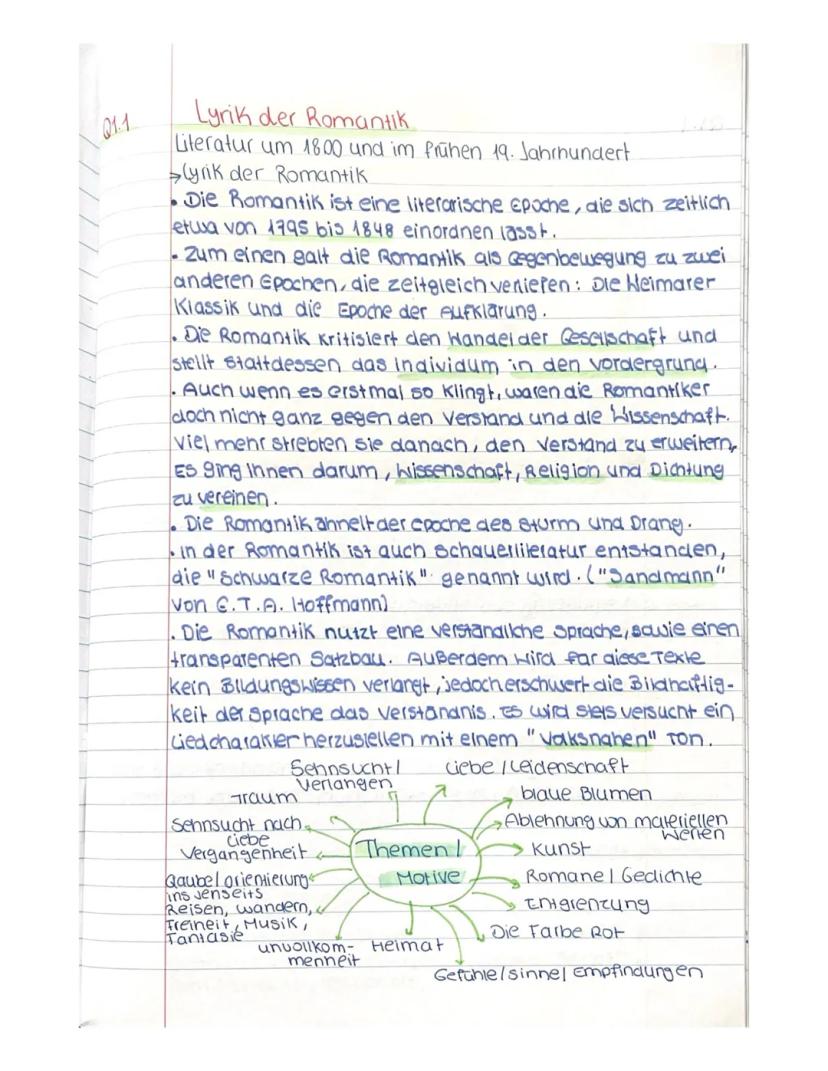 Q1.1
Lyrik der Romantik
Literatur um 1800 und im frühen 19. Jahrhundert
→Lyrik der Romantik
• Die Romantik ist eine literarische Epoche, die sich zeitlich
etwa von 1795 bis 1848 einordnen lässt.
• Zum einen galt die Romantik als Gegenbewegung zu zwei
anderen Epochen, die zeitgleich verliefen: Die Weimarer
Klassik und die Epoche der Aufklärung.
• Die Romantik kritisiert den Wandel der Gesellschaft und
stellt stattdessen das Individum in den vordergrund.
• Auch wenn es erstmal so klingt, waren die Romantiker
doch nicht ganz gegen den Verstand und die Wissenschaft.
Viel mehr strebten sie danach, den Verstand zu erweitern,
Es ging ihnen darum, Wissenschaft, Religion und Dichtung
zu vereinen.
• Die Romantik ähnelt der Epoche des Sturm und Drang.
• in der Romantik ist auch Schauerliteratur entstanden,
die "Schwarze Romantik" genannt wird. ("Sandmann"
von E.T.A. Hoffmann)
• Die Romantik nutzt eine verständliche Sprache, sowie einen
transparenten Satzbau. Außerdem wird für diese Texte
kein Bildungswissen verlangt, jedoch erschwert die Bildhaftig-
keit der Sprache das Verständnis. Es wird stets versucht ein
Liedcharakter herzustellen mit einem "volksnahen" Ton.
Sehnsucht/
Verlangen
Liebe / Leidenschaft
Traum
blaue Blumen
Sehnsucht nach
Liebe
Ablehnung von materiellen
Werten
Vergangenheit
Themen /
Motive
Kunst
Glaube/ orientierung
ins Jenseits
Romane / Gedichte
Reisen, wandern,
Freiheit, Musik,
Fantasie
Entgrenzung
Die Farbe Rot
unvollkom-
menheit
Heimat
Gefühle / sinne / Empfindungen